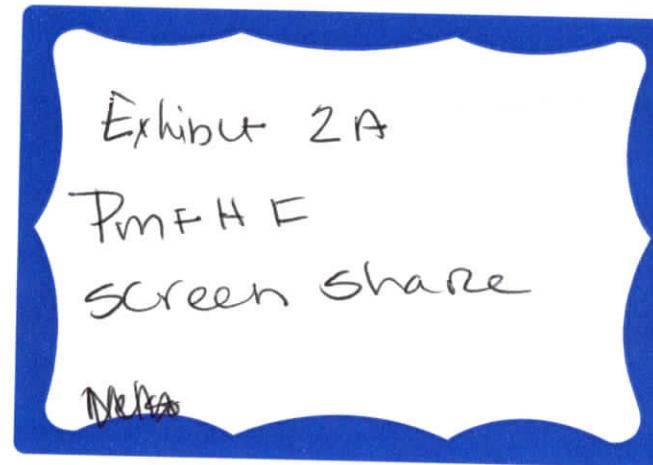 Exhibit 2A
PmFHF
screen share